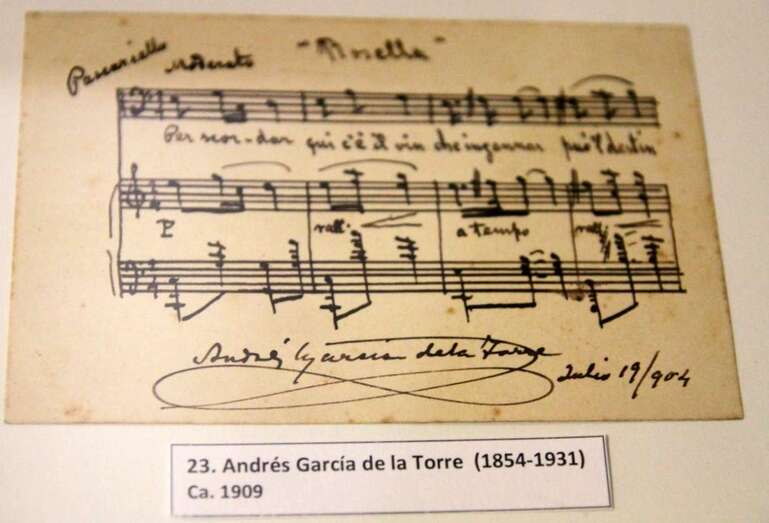 "Rosella"
Pascariello Moderato
Per scor-dar qui c'è il vin che ingannar può'l destin
P rall. a tempo rall
Andrés García de la Torre
Julio 19/904
23. Andrés García de la Torre (1854-1931)
Ca. 1909